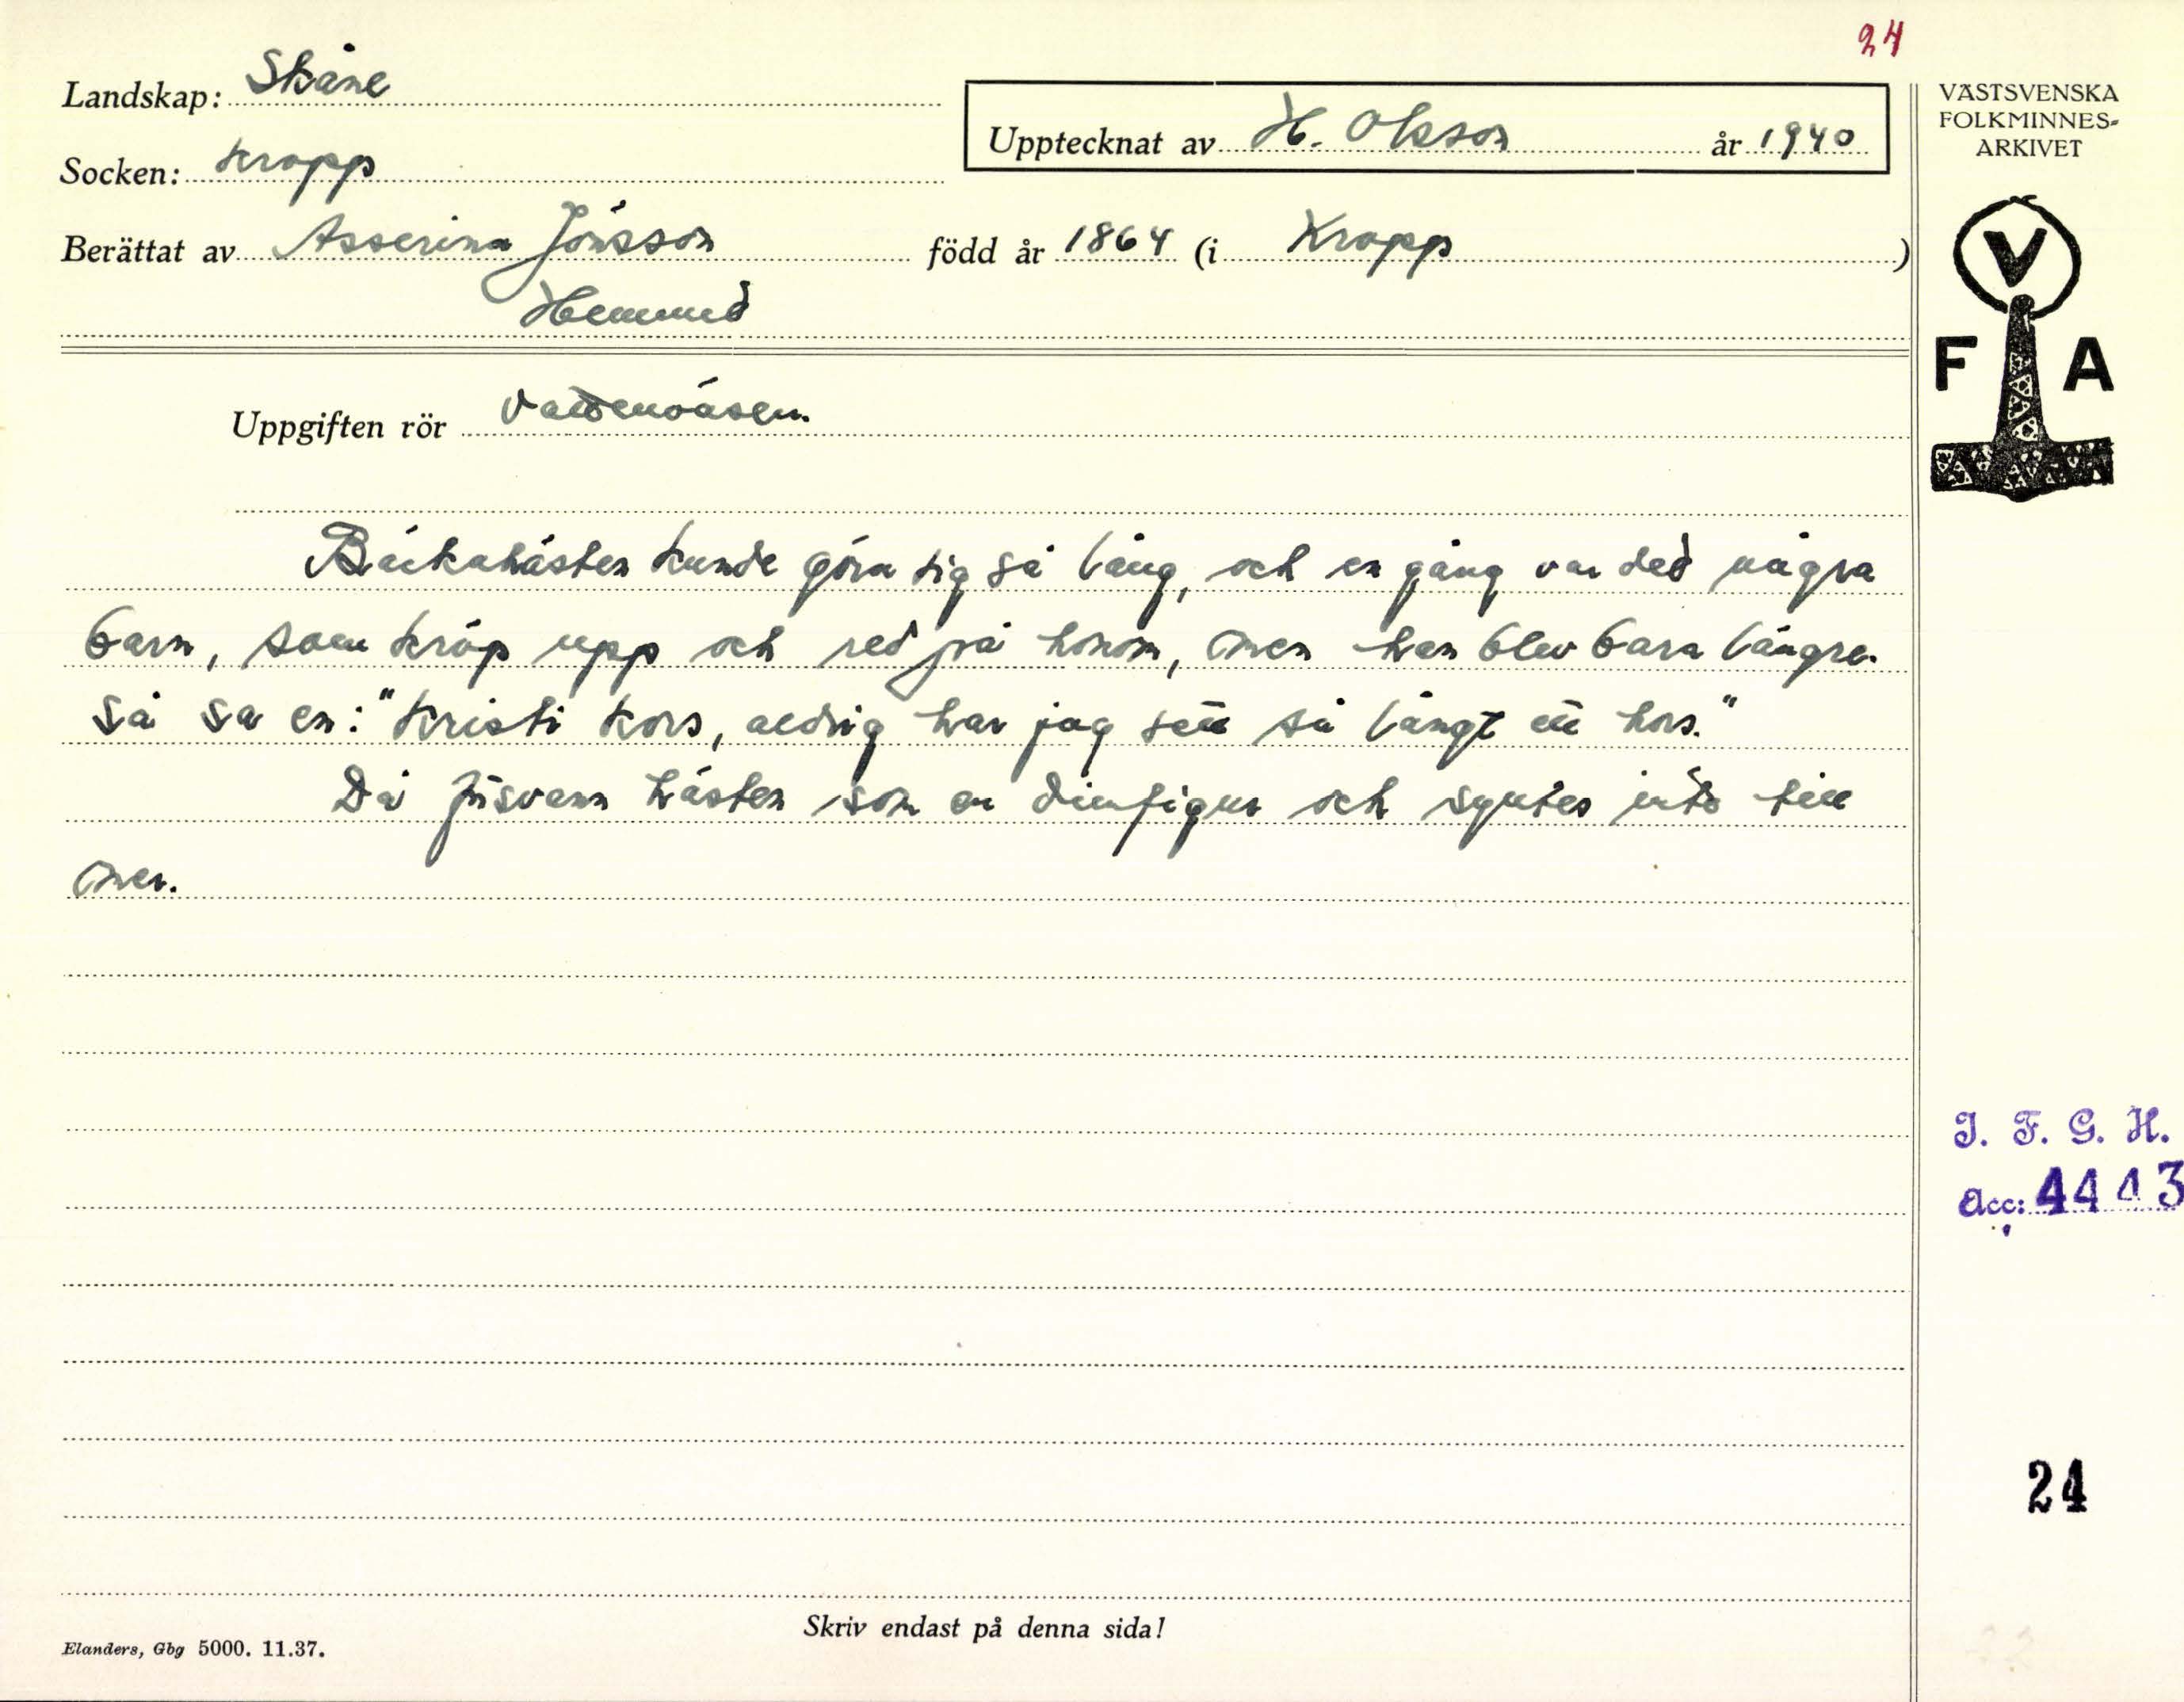 24
Landskap: Skåne
VÄSTSVENSKA
FOLKMINNES-
ARKIVET
Upptecknat av H. Olsson år 1940
Socken: Kropp
Berättat av Asserina Jönsson född år 1864 (i Kropp)
V
F A
Uppgiften rör Vattenväsen.
Bäckahästen kunde göra sig så lång, och en gång var det några
barn, som kröp upp och red på honom, men han blev bara längre.
Så sa en: "Kristi kors, aldrig har jag sett så långt ett hors."
Då försvann hästen som en dimfigur och syntes inte till
mer.
I. F. G. H.
Acc: 4443
24
Skriv endast på denna sida!
Elanders, Gbg 5000. 11.37.